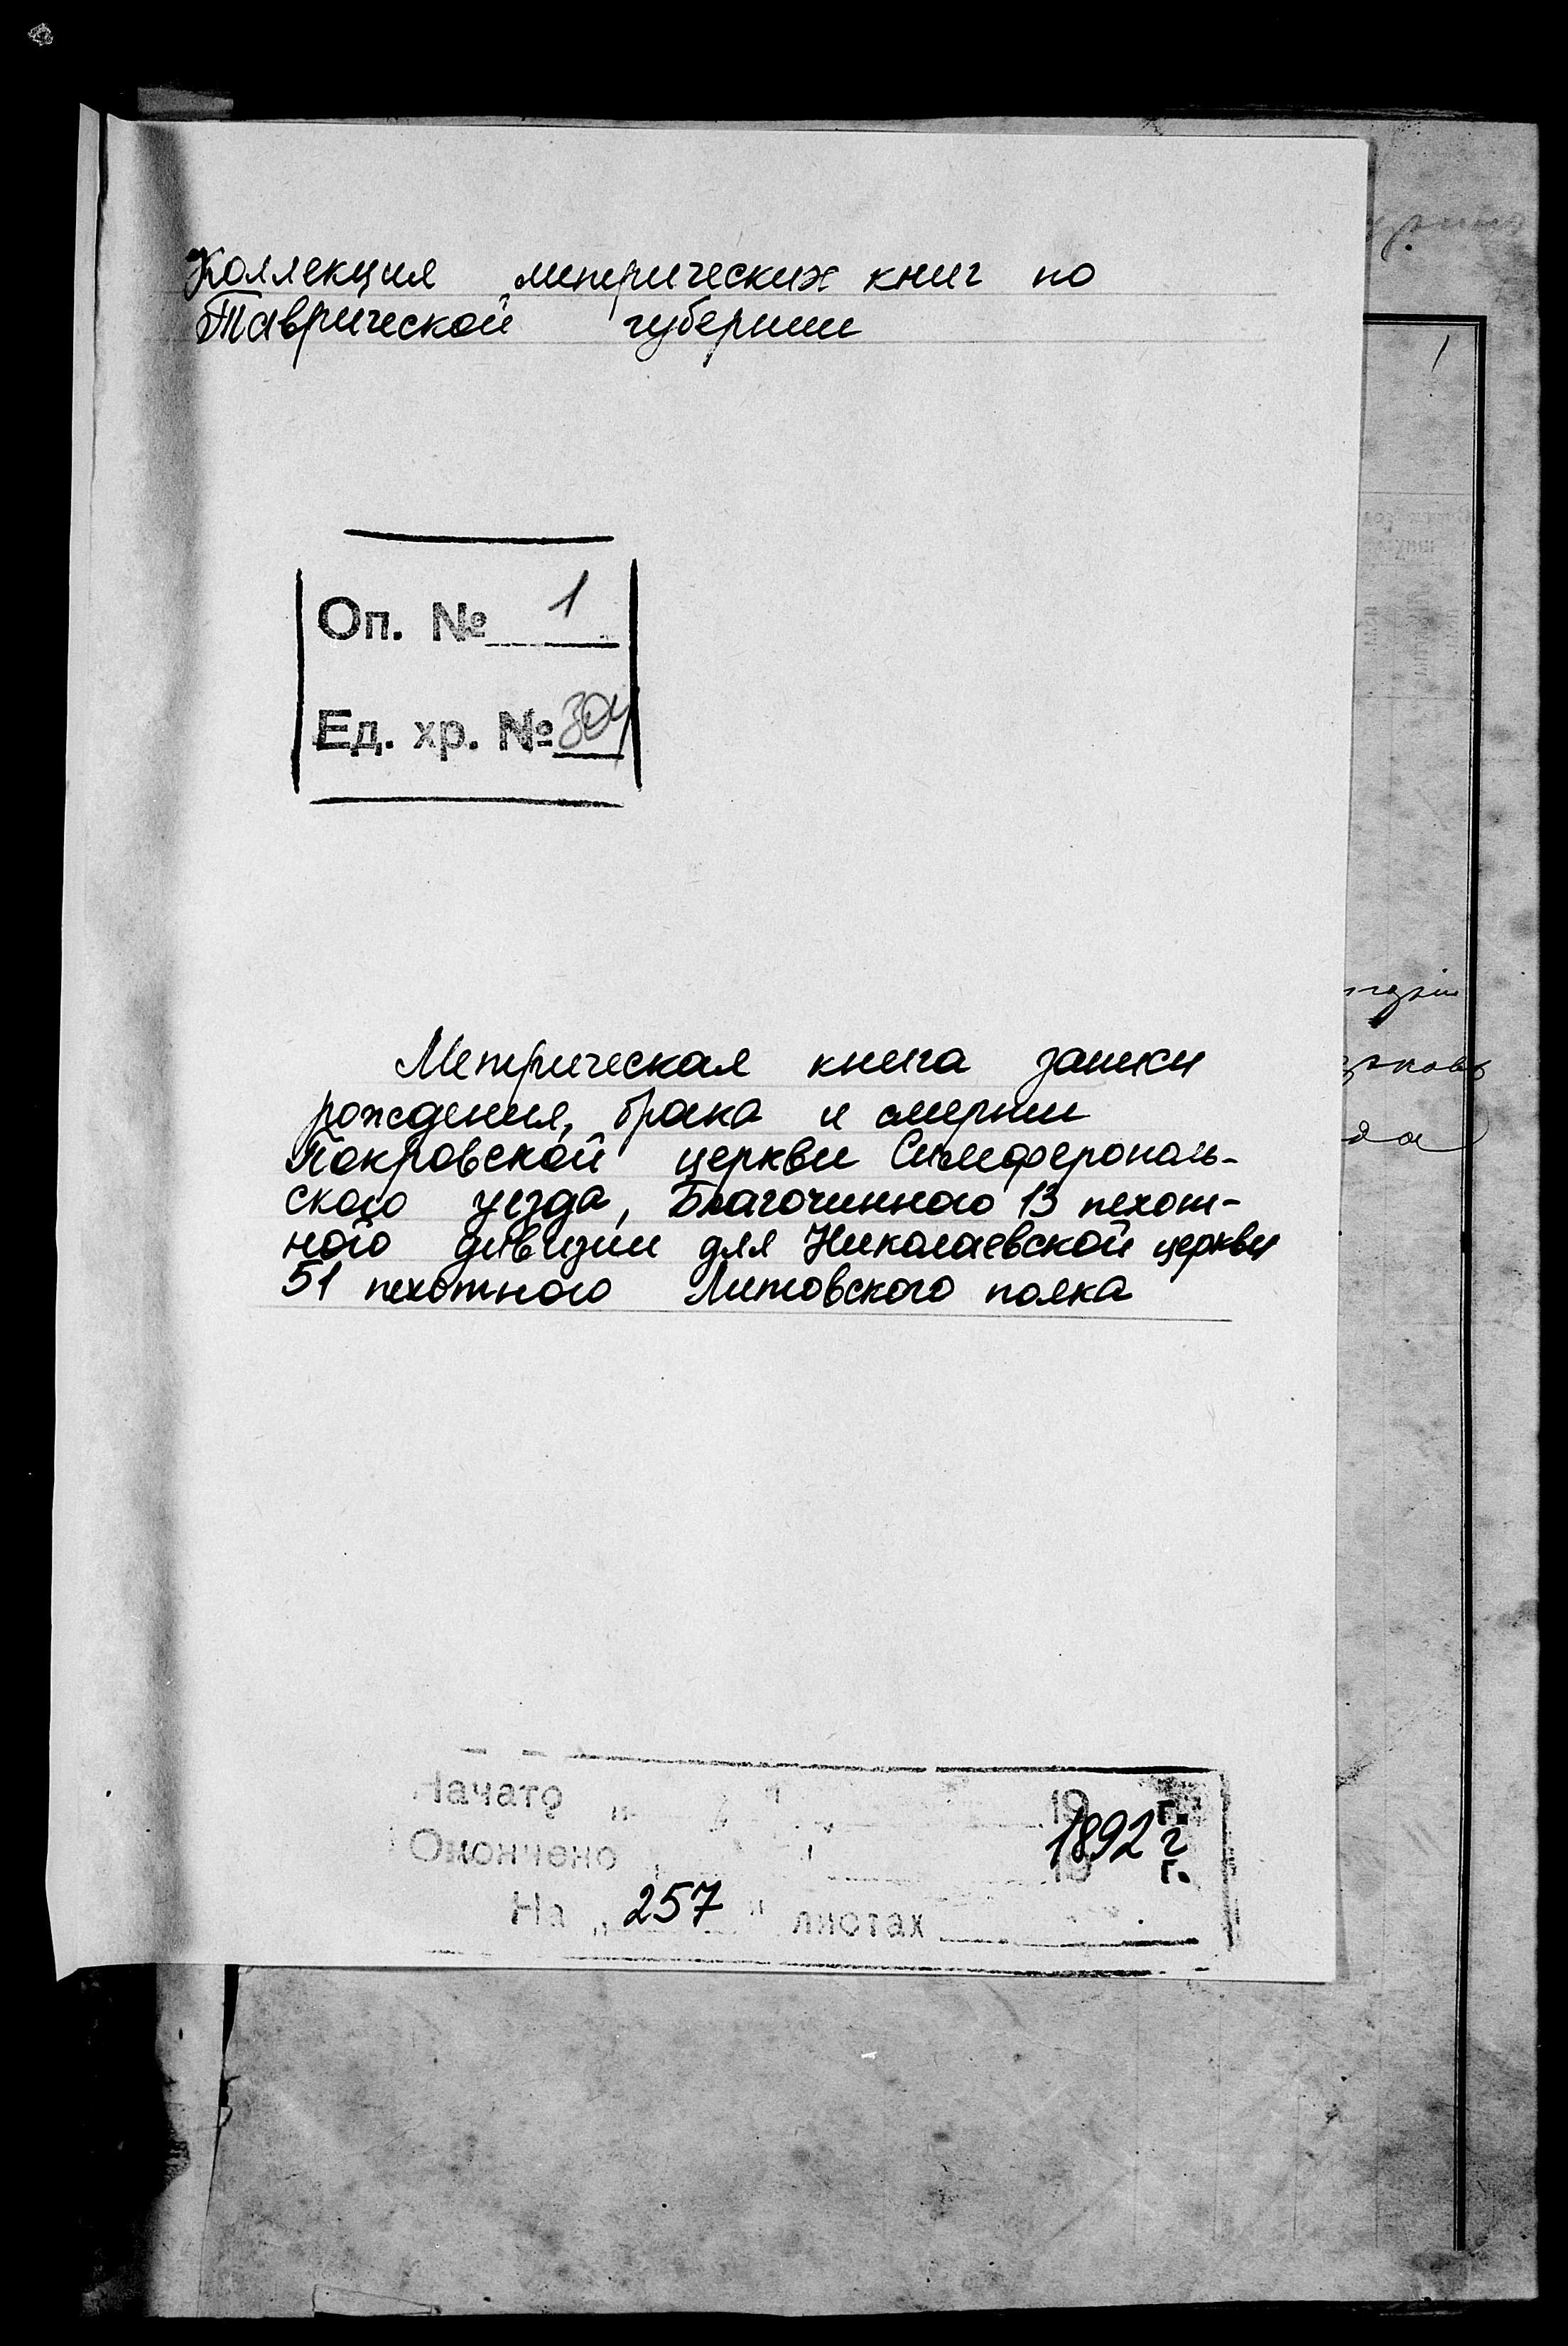 Коллекция метрических книг по
Таврической губернии
Оп. № 1
Ед. хр. № 304
Метрическая книга записи
рождения, брака и смерти
Покровской церкви Симферополь-
ского уезда, Благочинного 13 пехот-
ного дивизии для Николаевской церкви
51 пехотного Литовского полка
Начато " " 19 г.
1892 г
Окончено " " 19 г.
На „ 257 " листах